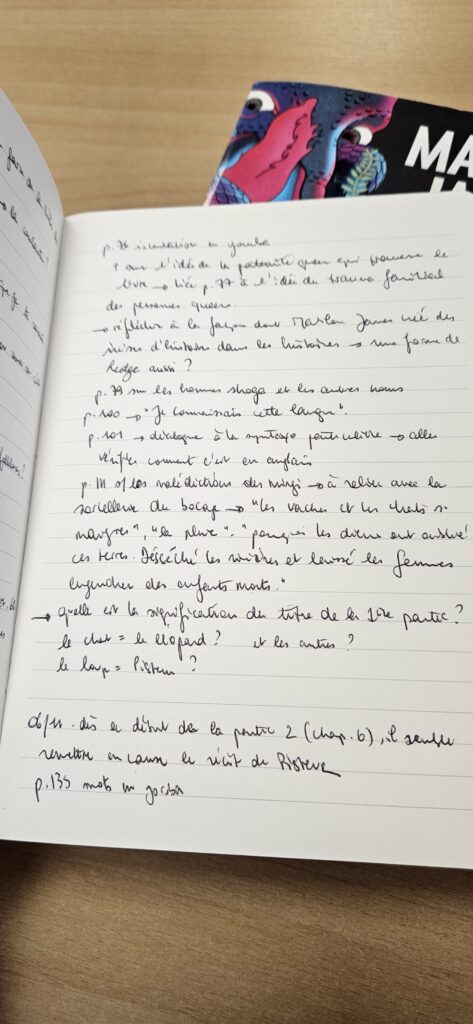 MA
p. 76 incantation en yoruba
sur l'idée de la paternité queer qui traverse le
livre → liée p. 77 à l'idée du trauma familial
des personnes queer.
→ réfléchir à la façon dont Marlon James crée des
mises d'histoire dans les histoires → une forme de
aussi ?
p. 79 sur les hommes shoga et les autres noms
p. 100 → "Je connaissais cette langue".
p. 101 → dialogue à la syntaxe particulière → aller
vérifier comment c'est en anglais
p. 111 s/ les malédictions des mingi → à relier avec la
sorcellerie du bocage → "les vaches et les chats si
maigres", "la pluie". "pourquoi les dieux ont oublié
ces terres. Désséché les rivières et laissé les femmes
engendrer des enfants morts."
→ quelle est la signification du titre de la 1ère partie ?
le chat = le léopard ? et les autres ?
le loup = Pisteur ?
06/11 . dès le début de la partie 2 (chap. 6), il semble
remettre en cause le récit de Pisteur
p. 135 mots en yoruba